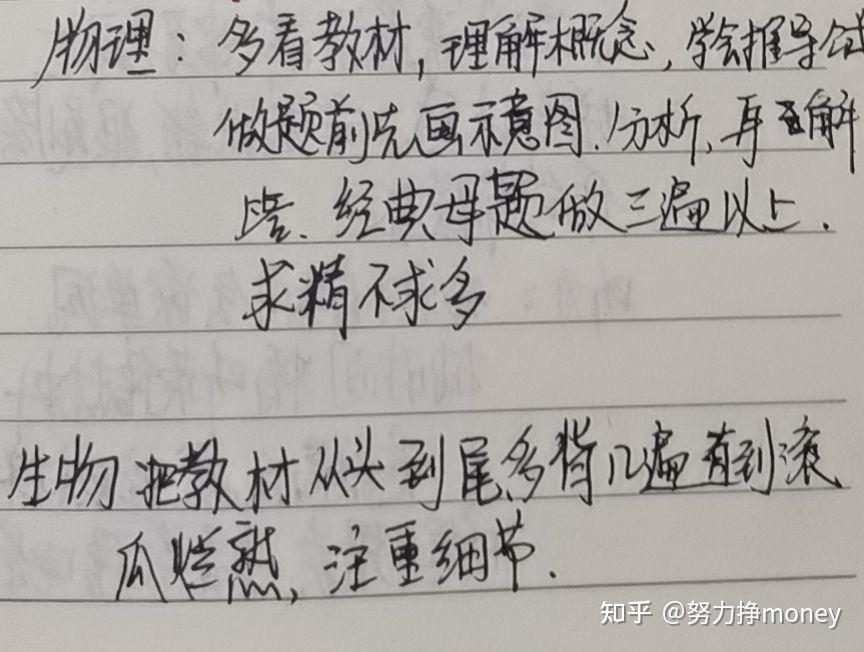 物理：多看教材，理解概念，学会推导公式
做题前先画示意图.分析，再解
答.经典母题做三遍以上.
求精不求多
生物 把教材从头到尾多背几遍 背到滚
瓜烂熟，注重细节.
知乎 @努力挣money